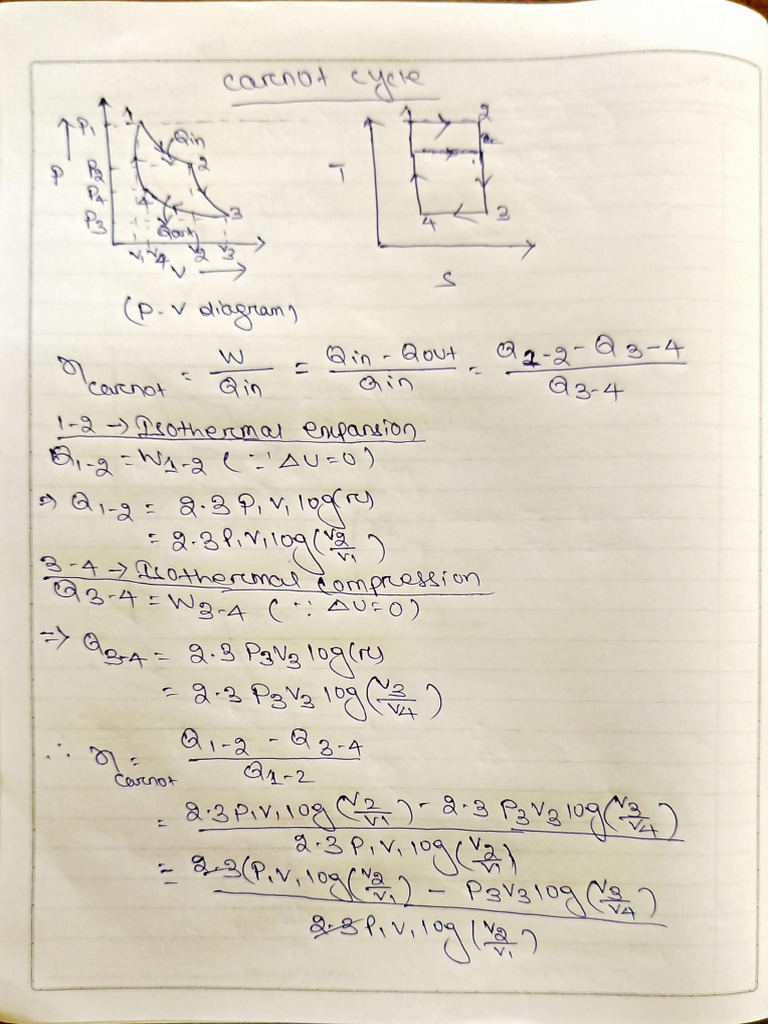 carnot cycle
P1
P2
P4
P3
P
1
Qin
2
4
3
Qout
V1 V4 V2 V3
V
T
1
2
4
3
S
(P-V diagram)
η carnot = W/Qin = (Qin - Qout)/Qin = (Q1-2 - Q3-4)/Q3-4
1-2 → Isothermal expansion
Q1-2 = W1-2 (∵ ΔU=0)
⇒ Q1-2 = 2.3 P1V1 log(r)
= 2.3 P1V1 log(V2/V1)
3-4 → Isothermal compression
Q3-4 = W3-4 (∵ ΔU=0)
⇒ Q3-4 = 2.3 P3V3 log(r)
= 2.3 P3V3 log(V3/V4)
∴ η carnot = (Q1-2 - Q3-4)/Q1-2
= (2.3 P1V1 log(V2/V1) - 2.3 P3V3 log(V3/V4))/(2.3 P1V1 log(V2/V1))
= 2.3(P1V1 log(V2/V1) - P3V3 log(V3/V4))/(2.3 P1V1 log(V2/V1))